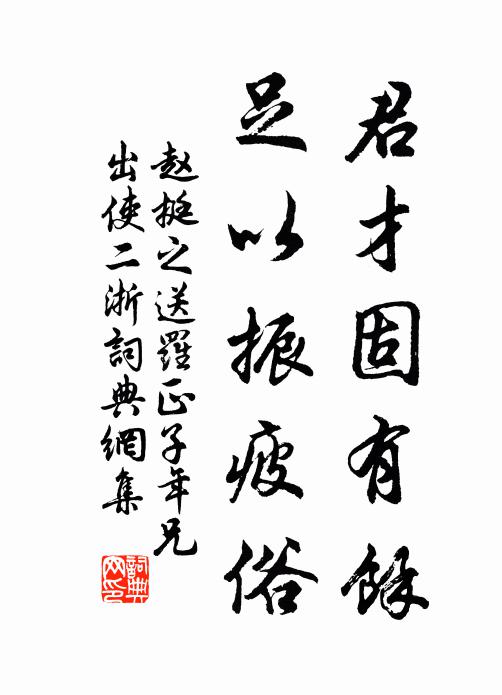 君才固有餘
足以振疲俗
赵挺之送羅正子年兄
出使二浙詞典網集
詞典
网印